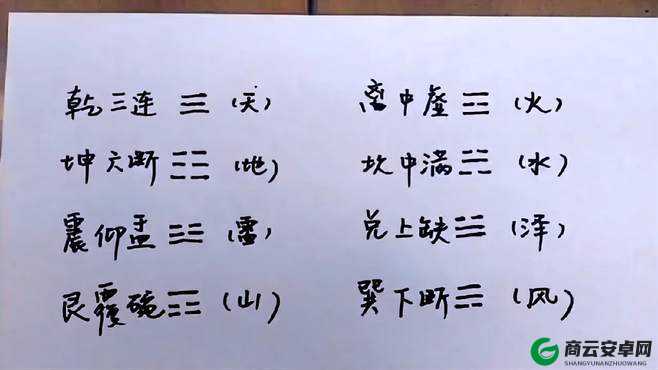 乾三连 ☰ (天) 离中虚 ☲ (火)
坤六断 ☷ (地) 坎中满 ☵ (水)
震仰盂 ☳ (雷) 兑上缺 ☱ (泽)
艮覆碗 ☶ (山) 巽下断 ☴ (风)
商云安卓网
SHANGYUNANZHUOWANG